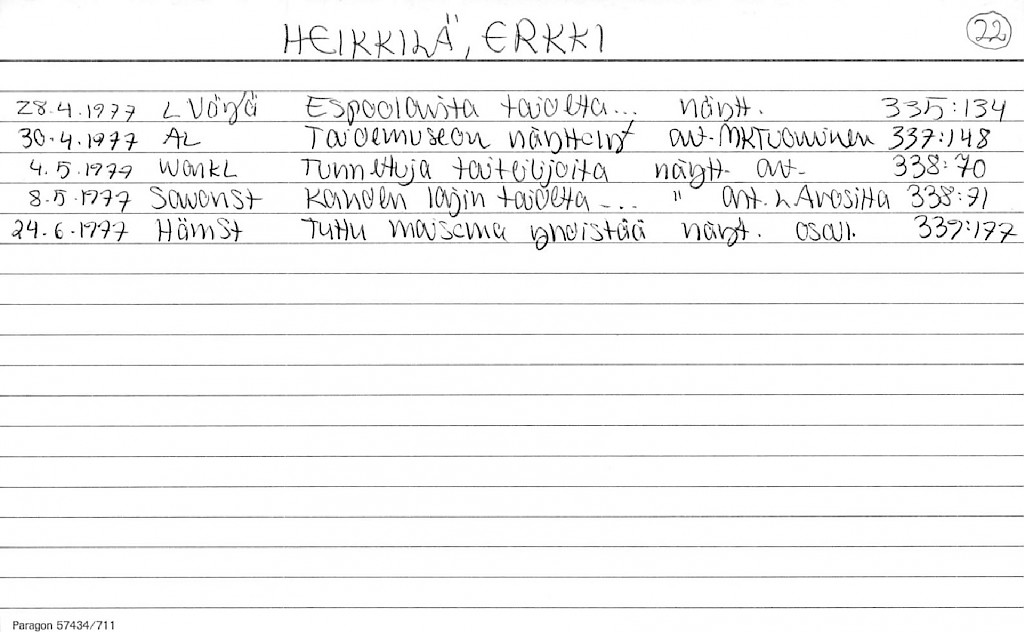 HEIKKILÄ, ERKKI 22
28.4.1977 LVäylä Espoolaista taidetta... näytt. 335:134
30.4.1977 AL Taidemuseon näyttelyt avt. MKTuominen 337:148
4.5.1977 WarkL Tunnettuja taiteilijoita näytt. avt. 338:70
8.5.1977 SavonSt Kahden lajin taidetta... " avt. L Arosilta 338:71
24.6.1977 HämSt Tuttu maisema yhdistää näyt. osal. 339:177
Paragon 57434/711